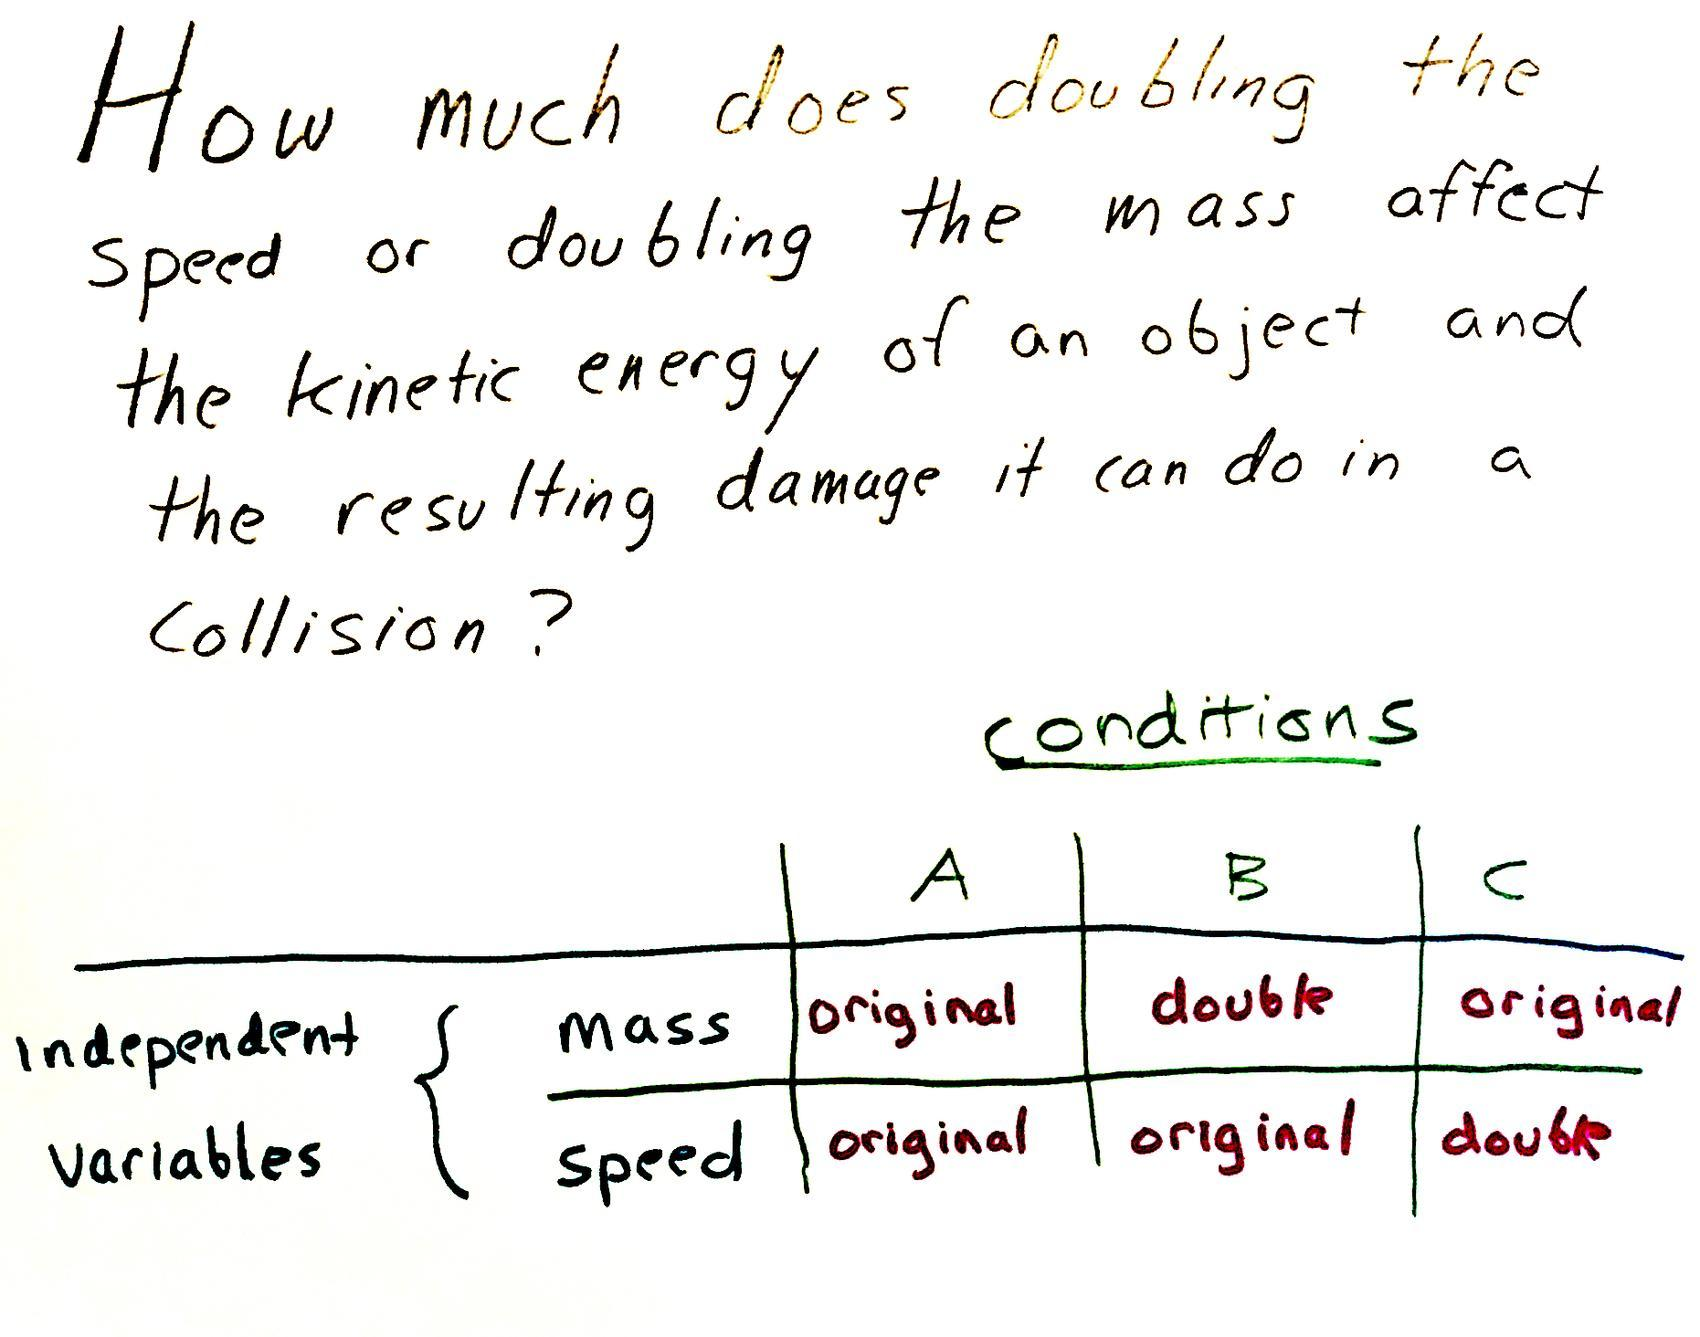 How much does doubling the
speed or doubling the mass affect
the kinetic energy of an object and
the resulting damage it can do in a
Collision?
conditions
A B C
Independent mass original double original
variables speed original original double